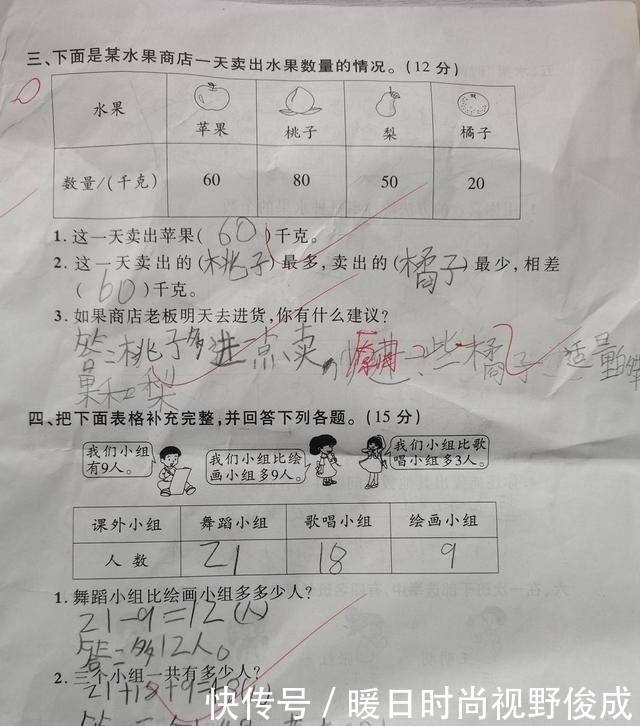 三、下面是某水果商店一天卖出水果数量的情况。(12 分)
水果 苹果 桃子 梨 橘子
数量/(千克) 60 80 50 20
1. 这一天卖出苹果( 60 )千克。
2. 这一天卖出的(桃子)最多,卖出的(橘子)最少,相差
( 60 )千克。
3. 如果商店老板明天去进货,你有什么建议?
答:桃子多进一点卖,少进一些橘子 适量
果和梨
四、把下面表格补充完整,并回答下列各题。(15 分)
我们小组
有9人。
我们小组比绘
画小组多9人。
我们小组比歌
唱小组多3人。
课外小组 舞蹈小组 歌唱小组 绘画小组
人数 21 18 9
1. 舞蹈小组比绘画小组多多少人?
21-9=12(人)
答:多12人。
2. 三个小组一共有多少人?
21+18+9=48(人)
快传号/暖日时尚视野俊成